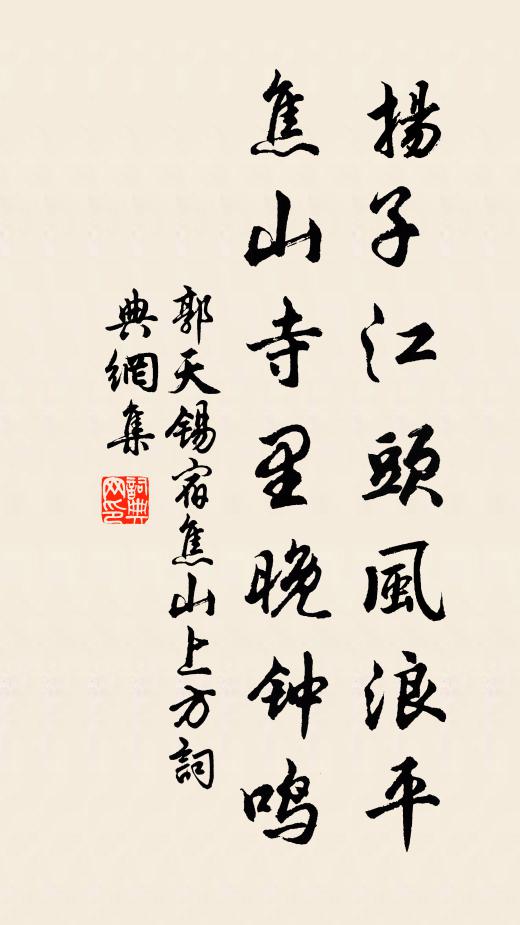 揚子江頭風浪平
焦山寺里晚钟鸣
郭天锡宿焦山上方詞
典網集
詞典
网印